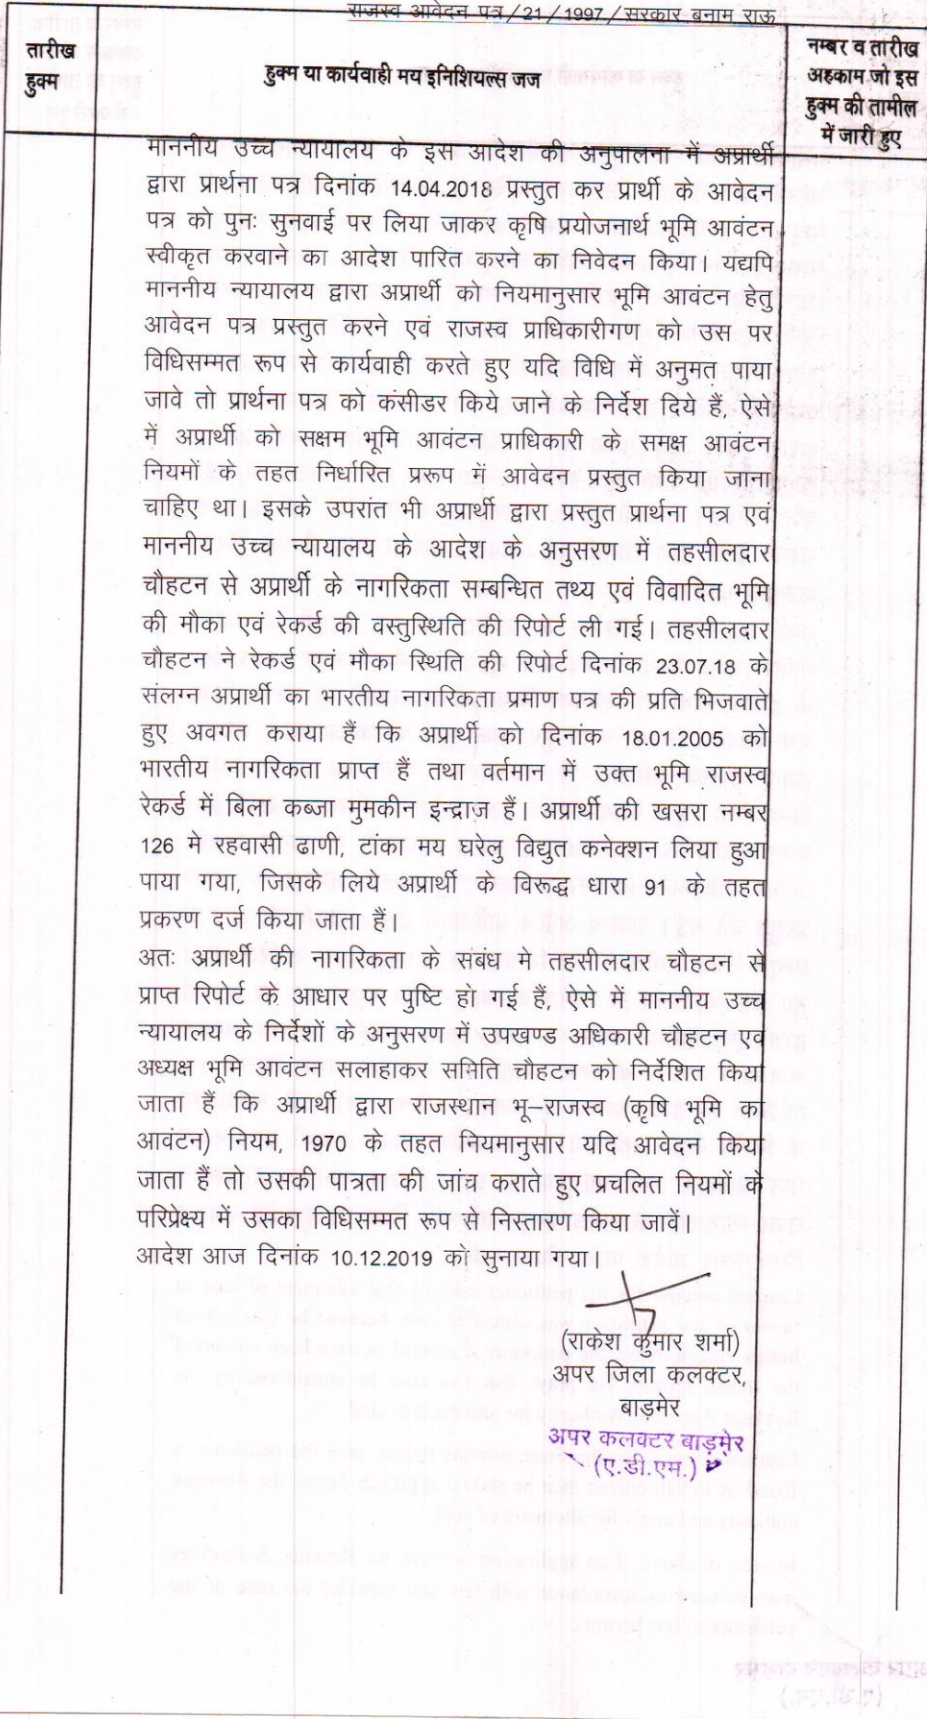 राजस्व आवेदन पत्र/21/1997/सरकार बनाम राऊ
तारीख
हुक्म
हुक्म या कार्यवाही मय इनिशियल्स जज
नम्बर व तारीख
अहकाम जो इस
हुक्म की तामील
में जारी हुए
माननीय उच्च न्यायालय के इस आदेश की अनुपालना में अप्रार्थी
द्वारा प्रार्थना पत्र दिनांक 14.04.2018 प्रस्तुत कर प्रार्थी के आवेदन
पत्र को पुनः सुनवाई पर लिया जाकर कृषि प्रयोजनार्थ भूमि आवंटन
स्वीकृत करवाने का आदेश पारित करने का निवेदन किया। यद्यपि
माननीय न्यायालय द्वारा अप्रार्थी को नियमानुसार भूमि आवंटन हेतु
आवेदन पत्र प्रस्तुत करने एवं राजस्व प्राधिकारीगण को उस पर
विधिसम्मत रूप से कार्यवाही करते हुए यदि विधि में अनुमत पाया
जावे तो प्रार्थना पत्र को कंसीडर किये जाने के निर्देश दिये हैं, ऐसे
में अप्रार्थी को सक्षम भूमि आवंटन प्राधिकारी के समक्ष आवंटन
नियमों के तहत निर्धारित प्ररूप में आवेदन प्रस्तुत किया जाना
चाहिए था। इसके उपरांत भी अप्रार्थी द्वारा प्रस्तुत प्रार्थना पत्र एवं
माननीय उच्च न्यायालय के आदेश के अनुसरण में तहसीलदार
चौहटन से अप्रार्थी के नागरिकता सम्बन्धित तथ्य एवं विवादित भूमि
की मौका एवं रेकर्ड की वस्तुस्थिति की रिपोर्ट ली गई। तहसीलदार
चौहटन ने रेकर्ड एवं मौका स्थिति की रिपोर्ट दिनांक 23.07.18 के
संलग्न अप्रार्थी का भारतीय नागरिकता प्रमाण पत्र की प्रति भिजवाते
हुए अवगत कराया हैं कि अप्रार्थी को दिनांक 18.01.2005 को
भारतीय नागरिकता प्राप्त हैं तथा वर्तमान में उक्त भूमि राजस्व
रेकर्ड में बिला कब्जा मुमकीन इन्द्राज हैं। अप्रार्थी की खसरा नम्बर
126 मे रहवासी ढाणी, टांका मय घरेलु विद्युत कनेक्शन लिया हुआ
पाया गया, जिसके लिये अप्रार्थी के विरूद्ध धारा 91 के तहत
प्रकरण दर्ज किया जाता हैं।
अतः अप्रार्थी की नागरिकता के संबंध मे तहसीलदार चौहटन से
प्राप्त रिपोर्ट के आधार पर पुष्टि हो गई हैं, ऐसे में माननीय उच्च
न्यायालय के निर्देशों के अनुसरण में उपखण्ड अधिकारी चौहटन एवं
अध्यक्ष भूमि आवंटन सलाहाकर समिति चौहटन को निर्देशित किया
जाता हैं कि अप्रार्थी द्वारा राजस्थान भू–राजस्व (कृषि भूमि का
आवंटन) नियम, 1970 के तहत नियमानुसार यदि आवेदन किया
जाता हैं तो उसकी पात्रता की जांच कराते हुए प्रचलित नियमों के
परिप्रेक्ष्य में उसका विधिसम्मत रूप से निस्तारण किया जावें।
आदेश आज दिनांक 10.12.2019 को सुनाया गया।
(राकेश कुमार शर्मा)
अपर जिला कलक्टर,
बाड़मेर
अपर कलक्टर बाड़मेर
(ए.डी.एम.)